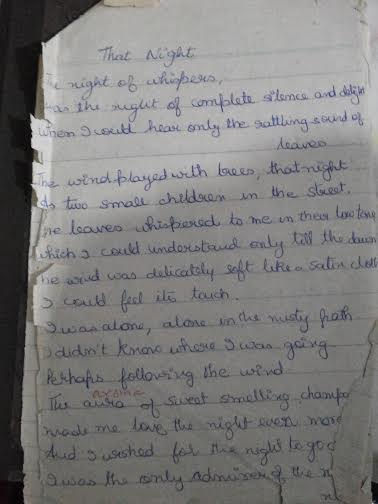 That Night
night of whispers,
as the night of complete silence and delight
When I could hear only the rattling sound of
leaves
The wind played with trees, that night
As two small children in the street.
he leaves whispered to me in their low tone
which I could understand only till the dawn
he wind was delicately soft like a satin cloth
I could feel its touch.
I was alone, alone in the rusty path
I didn't know where I was going
Perhaps following the wind
aroma
The aura of sweet smelling champa
made me love the night even more
And I wished for the night to go
I was the only admirer of the